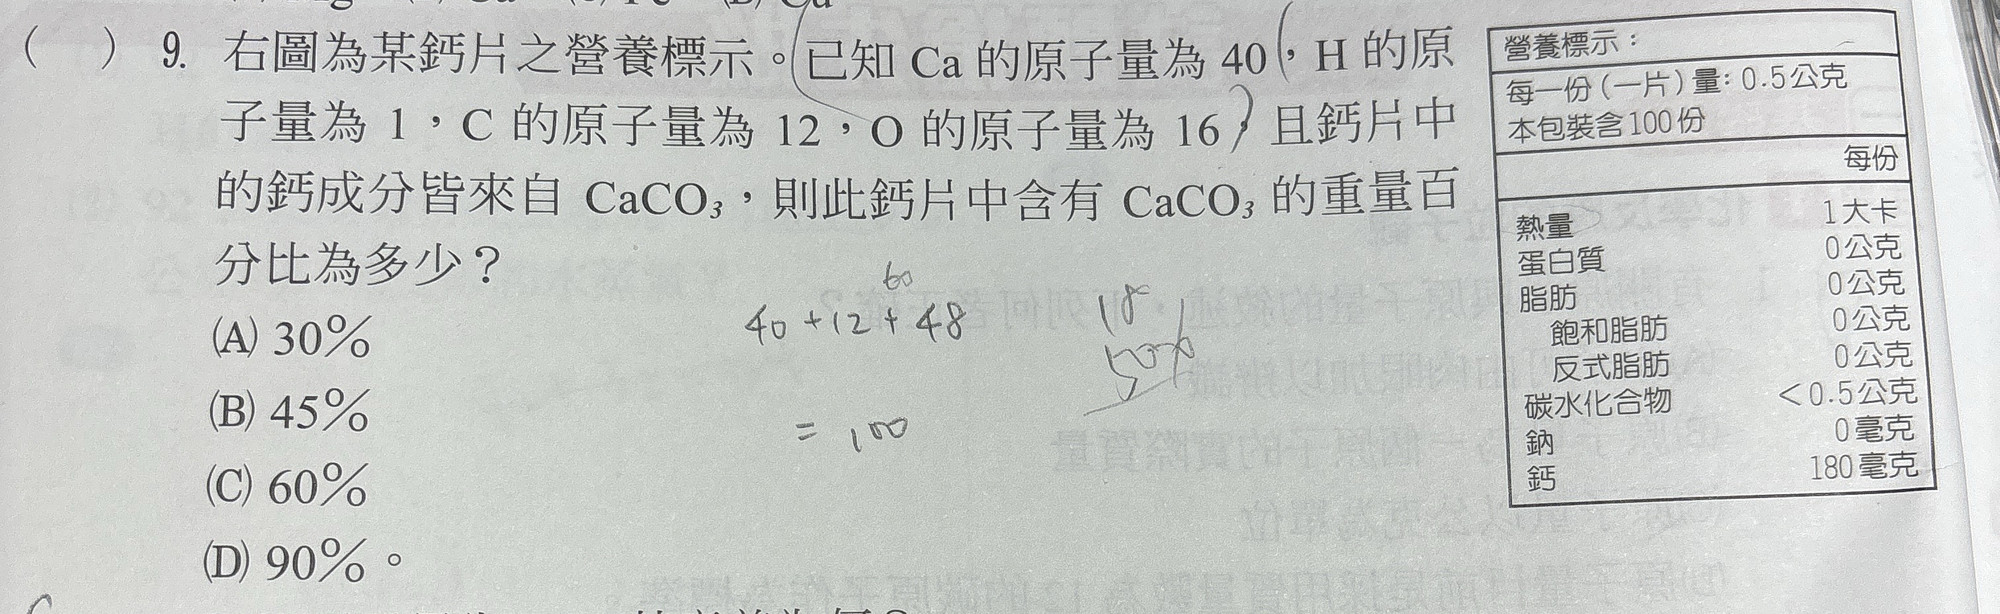 ( ) 9. 右圖為某鈣片之營養標示。已知 Ca 的原子量為 40,H 的原
子量為 1,C 的原子量為 12,O 的原子量為 16,且鈣片中
的鈣成分皆來自 CaCO₃,則此鈣片中含有 CaCO₃ 的重量百
分比為多少?
(A) 30%
(B) 45%
(C) 60%
(D) 90%。
60
40+12+48
=100
18
營養標示:
每一份(一片)量:0.5公克
本包裝含100份
每份
熱量 1大卡
蛋白質 0公克
脂肪 0公克
飽和脂肪 0公克
反式脂肪 0公克
碳水化合物 <0.5公克
鈉 0毫克
鈣 180毫克